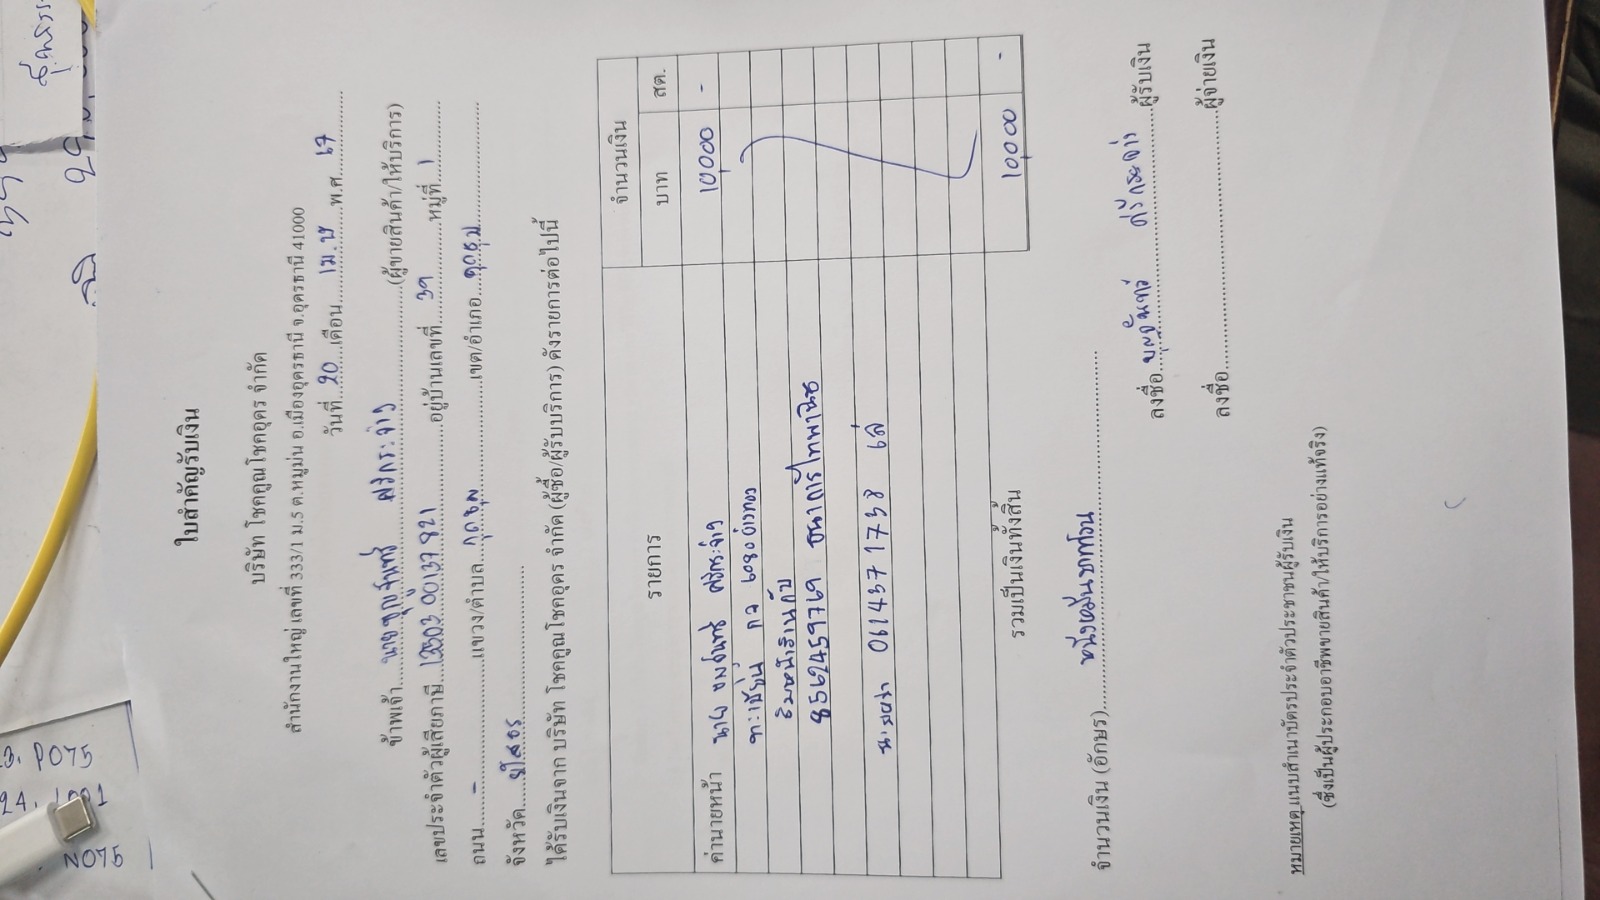 ใบสำคัญรับเงิน
บริษัท โชคคูณโชคอุดร จำกัด
สำนักงานใหญ่ เลขที่ 333/1 ม.5 ต.หมูม่น อ.เมืองอุดรธานี จ.อุดรธานี 41000
วันที่ 20 เดือน เม.ษ พ.ศ. 67
ข้าพเจ้า นายบุญจันทร์ ศรีกระจ่าง (ผู้ขายสินค้า/ให้บริการ)
เลขประจำตัวผู้เสียภาษี 00137821 อยู่บ้านเลขที่ 39 หมู่ที่ 1
ถนน - แขวง/ตำบล กุดชุม เขต/อำเภอ กุดชุม
จังหวัด ยโสธร
ได้รับเงินจาก บริษัท โชคคูณโชคอุดร จำกัด (ผู้ซื้อ/ผู้รับบริการ) ดังรายการต่อไปนี้
รายการ จำนวนเงิน
บาท สต.
ค่านายหน้า นาย ศรีกระจ่าง 10,000 -
ทะเบียน กว 6080
8562459769 ธนาคารไทยพาณิช
061437 1738
รวมเป็นเงินทั้งสิ้น 10,000 -
จำนวนเงิน (อักษร) หนึ่งหมื่นบาทถ้วน
ลงชื่อ บุญจันทร์ ศรีกระจ่าง ผู้รับเงิน
ลงชื่อ ผู้จ่ายเงิน
หมายเหตุ แนบสำเนาบัตรประจำตัวประชาชนผู้รับเงิน
(ซึ่งเป็นผู้ประกอบอาชีพขายสินค้า/ให้บริการอย่างแท้จริง)
P075
N075